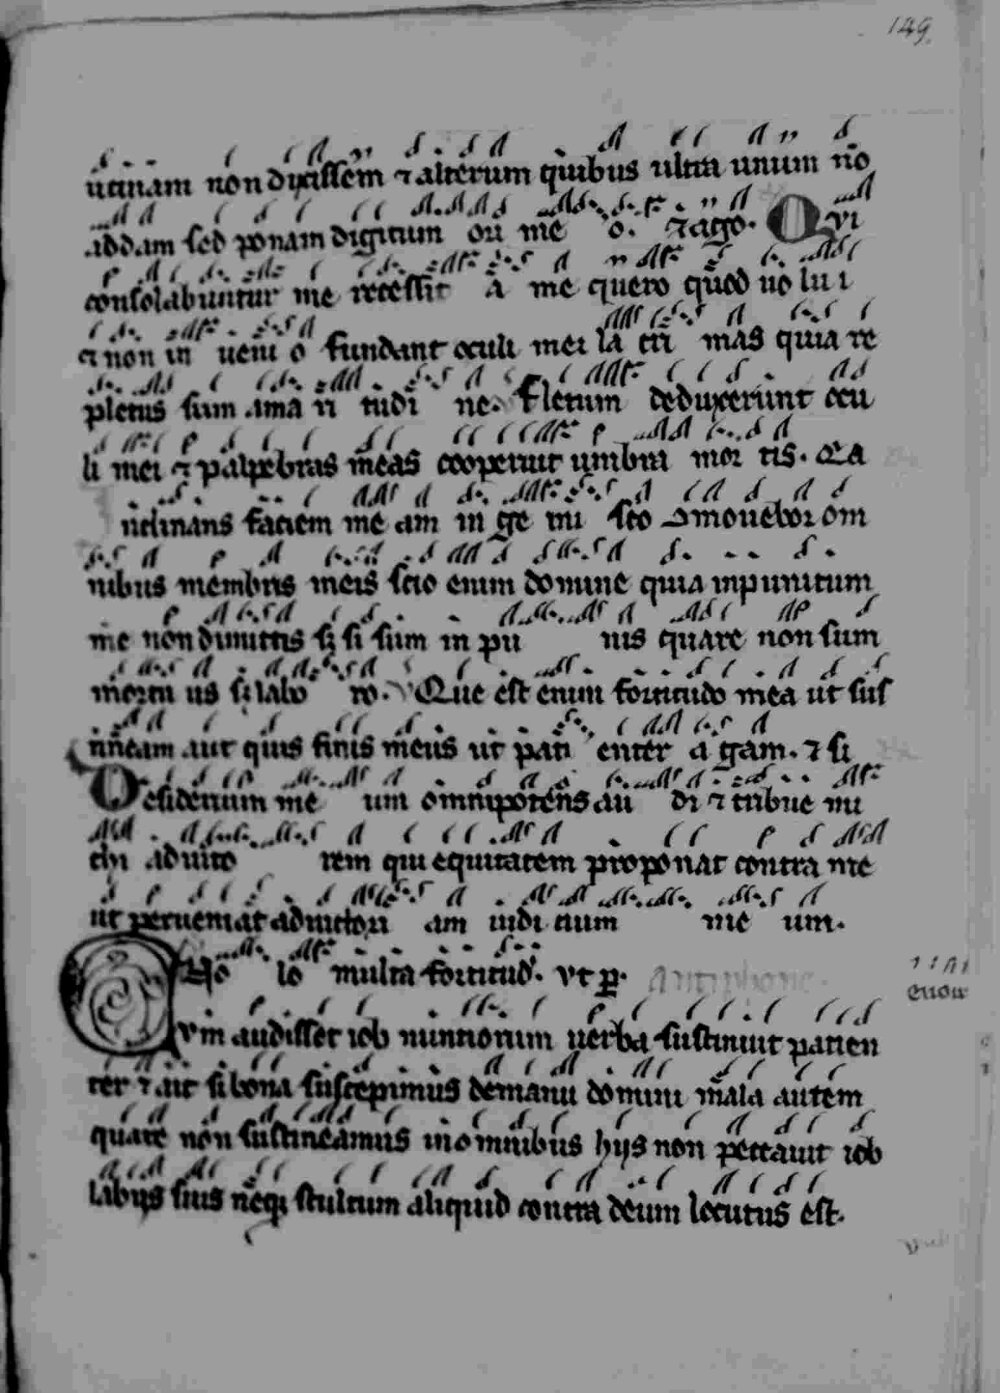 149.
utinam non dixissem ⁊ alterum quibus ultra unum nō
addam sed ponam digitum ori me o. ⁊ ago. Qvi
consolabuntur me recessit a me quero quod nō lu i
⁊ non in ueni o fundant oculi mei la cri mas quia re
pletus sum ama ri tudi ne. Fletum deduxerunt ocu
li mei ⁊ palpebras meas cooperuit umbra mor tis. Qa
nclinans faciem me am in ge mi sco ɔmouebor om
nibus membris meis scio enim domine quia inpunitum
me non dimittis sꝫ si sum in pu nis quare non sum
mortu us sꝫ labo ro. v Que est enim fortitudo mea ut sus
tineam aut quis finis meus ut pati enter a gam. ⁊ si
Desiderium me um omnipotens au di ⁊ tribue mi
chi adiuto rem qui equitatem proponat contra me
ut perueniat ad uictori am iudi cium me um.
No lo multa fortitud. vt p̱. Antiphone.
euouae
Cvm audisset iob nuntiorum uerba sustinuit patien
ter ⁊ ait si bona suscepimus de manu domini mala autem
quare non sustineamus in omnibus hijs non peccauit iob
labijs suis neqꝫ stultum aliquid contra deum locutus est.